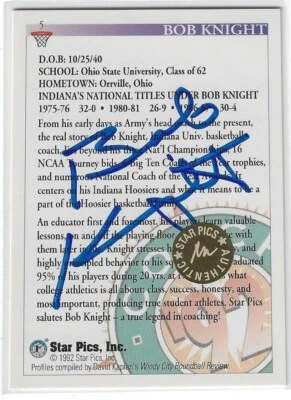 5
BOB KNIGHT
D.O.B: 10/25/40
SCHOOL: Ohio State University, Class of 62
HOMETOWN: Orrville, Ohio
INDIANA'S NATIONAL TITLES UNDER BOB KNIGHT
1975-76 32-0 • 1980-81 26-9 30-4
From his early days as Army's head to the present,
the real story Bob Knight. Indiana Univ. basketball
coach, beyond his Nat'l Championship 16
NCAA Tourney bids, Big Ten Coach trophies,
and National Coach of the
centers on his Indiana Hoosiers and means to be a
part of the Hoosier basketball
An educator first and players earn valuable
lessons on and off the playing floor with
them later in Knight stresses
highly behavior of his graduated
95% of his players during 20 yrs. at what
college athletics is all about: class, success, honesty, and
most important, producing true student athletes. Star Pics
salutes Bob Knight – a true legend in coaching!
Bob
Knight
STAR PICS
AUTHENTIC
92
Star Pics, Inc.
© 1992 Star Pics, Inc.
Profiles compiled by David Kaplan's Windy City Roundball Review.